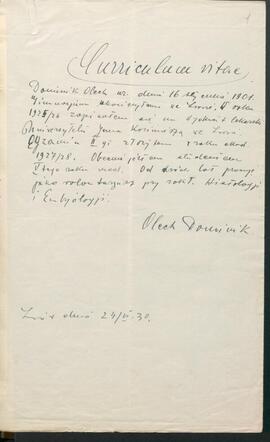 1
Curriculum vitae
Dominik Olech ur. dnia 16 stycznia 1901.
Gimnazjum ukończyłem we Lwowie, W roku
1925/26 zapisałem się na wydział lekarski
Uniwersytetu Jana Kazimierza we Lwowie.
Egzamin II gi złożyłem z roku szkol.
1927/28. Obecnie jestem studentem
V tego roku med. Od dwóch lat pracuję
jako wolontarjusz przy zakł. Histologji
i Embrjologji.
Olech Dominik
Lwów dnia 24/VI. 30.